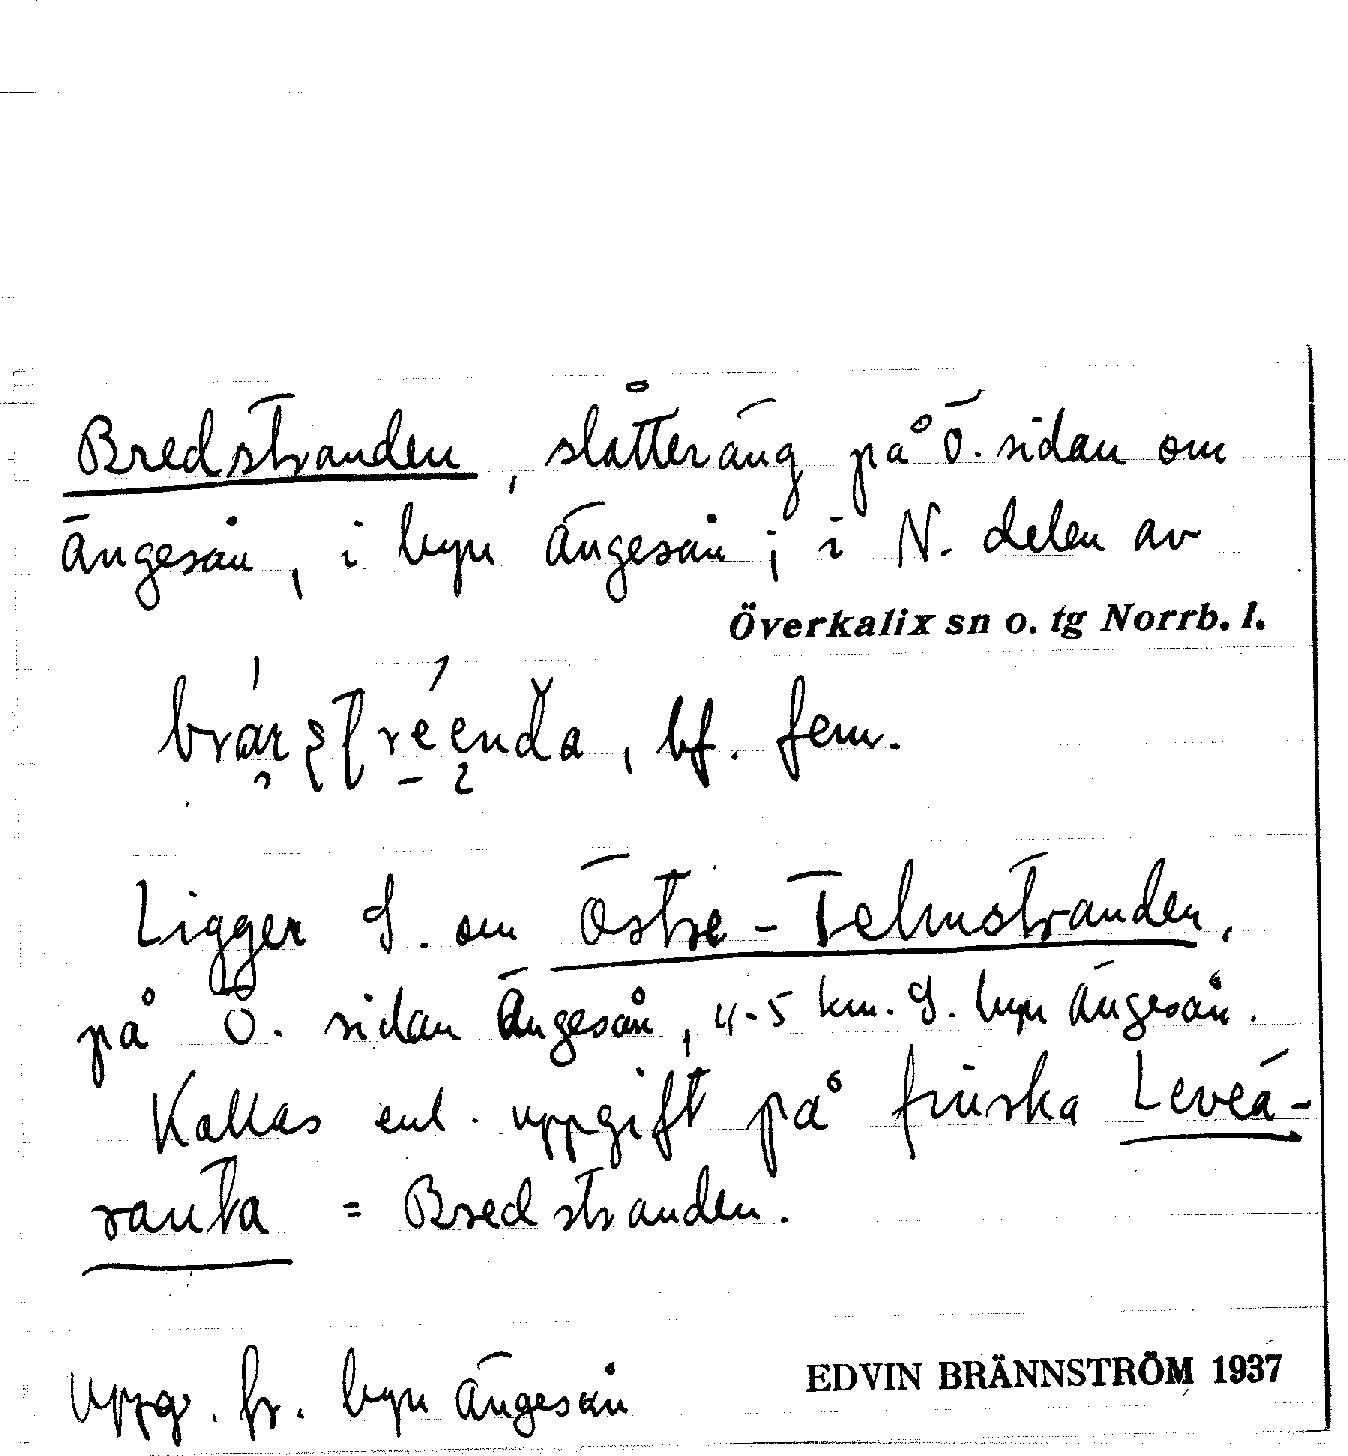 Bredstranden, slåtteräng på Ö. sidan om
Ängesån, i byn Ängesån; i N. delen av
Överkalix sn o. tg Norrb. l.
, bf. fem.
Ligger S. om Östre-Telmstranden,
på Ö. sidan Ängesån, 4-5 km. S. byn Ängesån.
Kallas enl. uppgift på finska Leveä-
ranta = Bredstranden.
Uppg. fr. byn Ängesån
EDVIN BRÄNNSTRÖM 1937